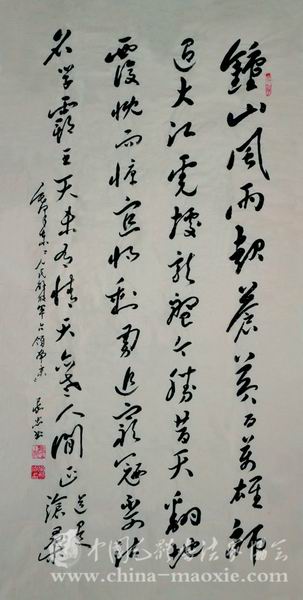 鍾山風雨起蒼黃百萬雄師
過大江虎據龍盤今勝昔天翻地
覆慨而慷宜將剩勇追窮寇不可沽
名學霸王天若有情天亦老人間正道是滄桑
毛澤東人民解放軍占領南京
www.china-maoxie.com